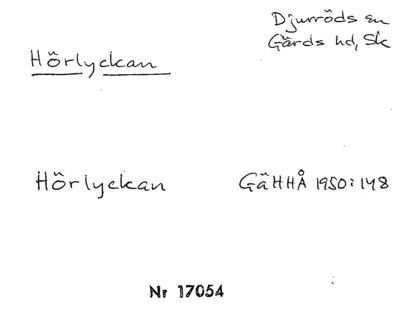 Djurröds sn
Gärds hd, Sk
Hörlyckan
Hörlyckan GäHHÅ 1950:148
Nr 17054